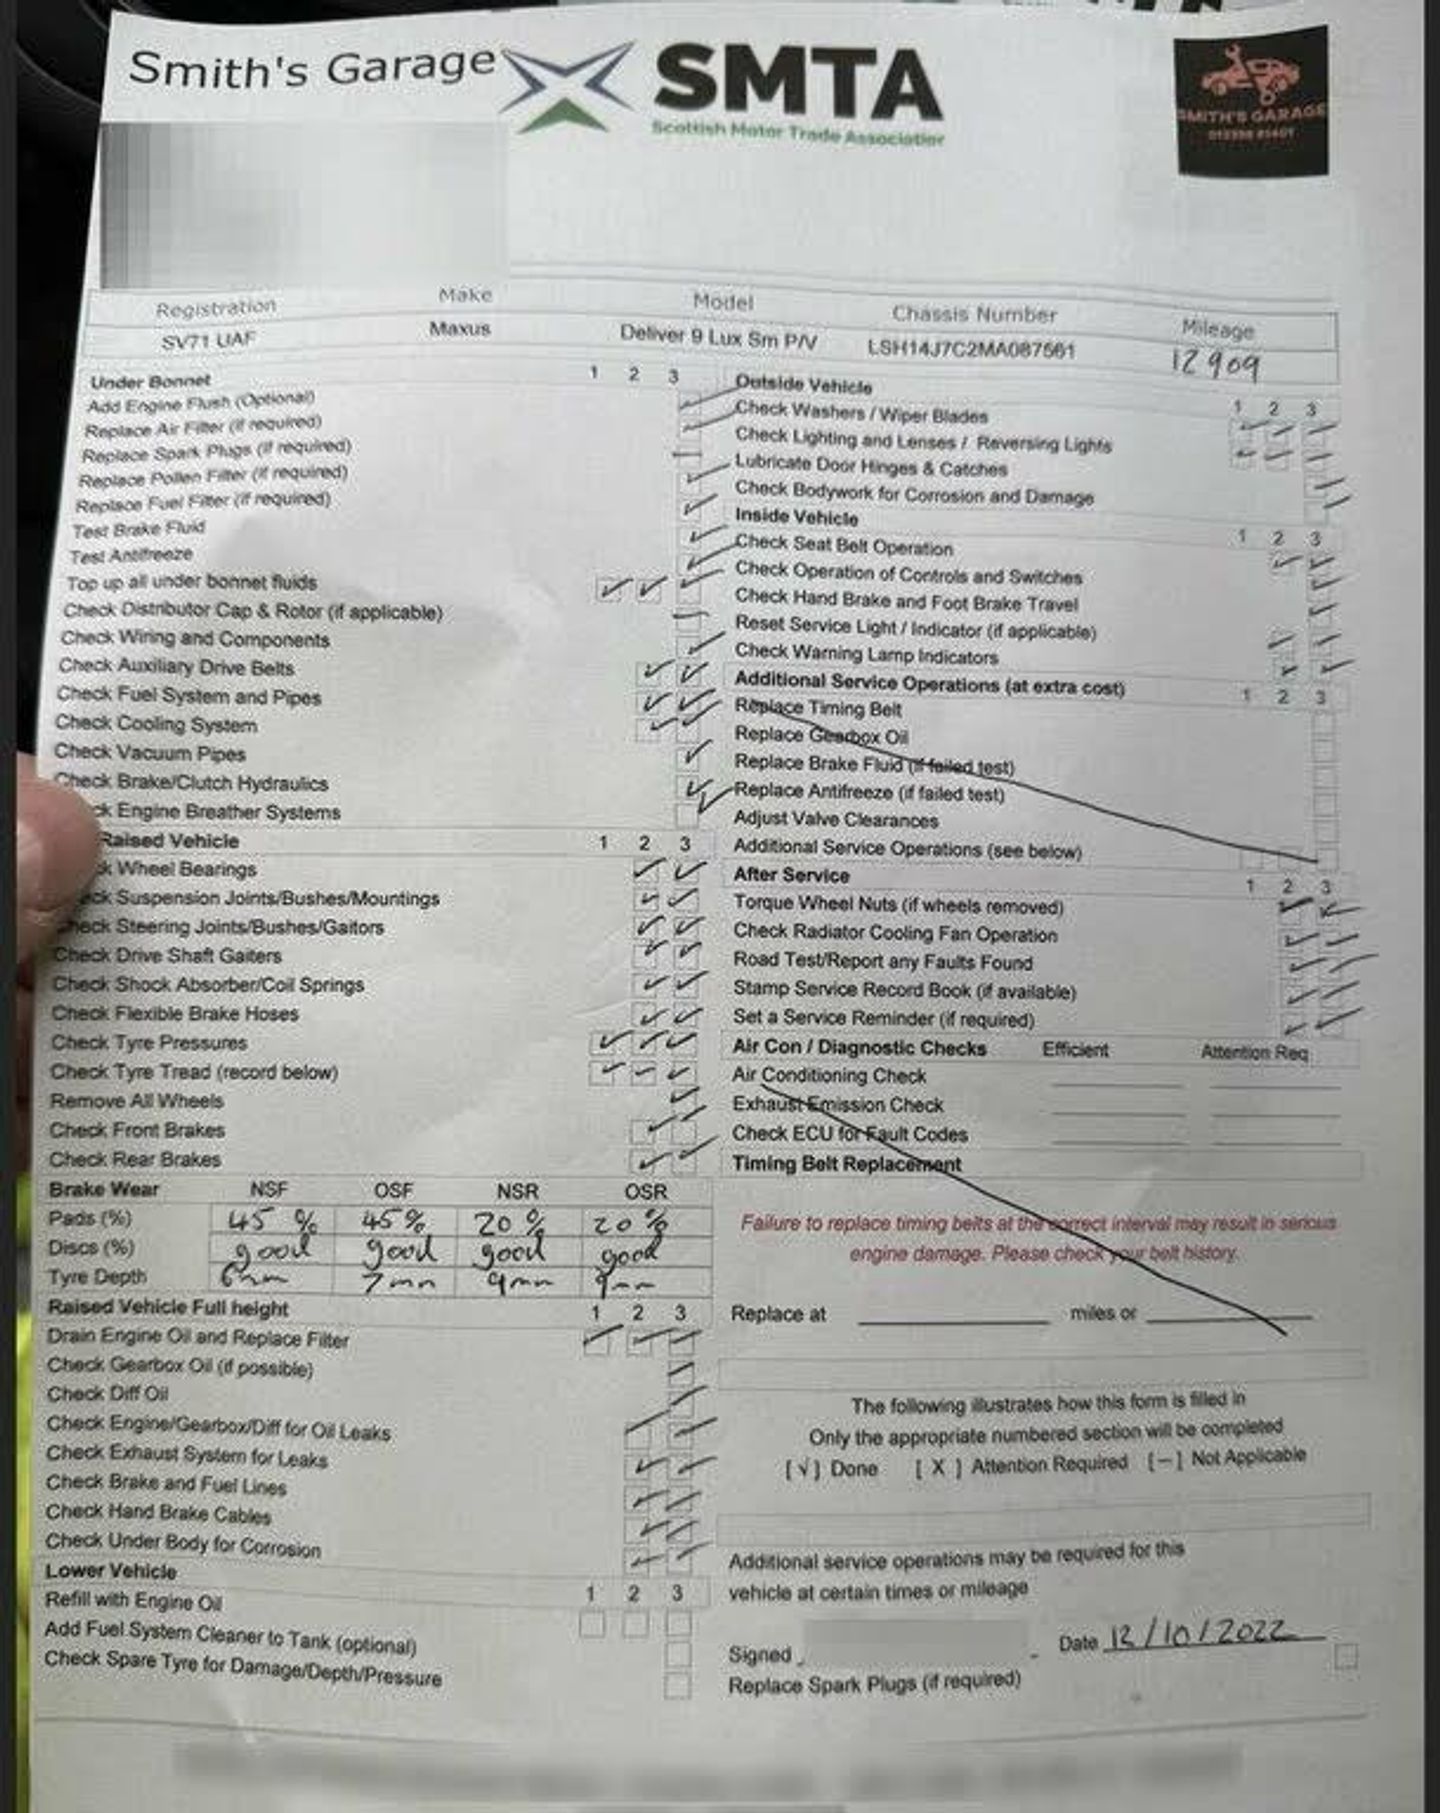 Smith's Garage
SMTA
Scottish Motor Trade Association
SMITH'S GARAGE
Registration Make Model Chassis Number Mileage
SV71 UAF Maxus Deliver 9 Lux Sm P/V LSH14J7C2MA087561 12909
Under Bonnet 1 2 3
Add Engine Flush (Optional)
Replace Air Filter (if required)
Replace Spark Plugs (if required)
Replace Pollen Filter (if required)
Replace Fuel Filter (if required)
Test Brake Fluid
Test Antifreeze
Top up all under bonnet fluids
Check Distributor Cap & Rotor (if applicable)
Check Wiring and Components
Check Auxiliary Drive Belts
Check Fuel System and Pipes
Check Cooling System
Check Vacuum Pipes
Check Brake/Clutch Hydraulics
ck Engine Breather Systems
Raised Vehicle 1 2 3
ck Wheel Bearings
ck Suspension Joints/Bushes/Mountings
Check Steering Joints/Bushes/Gaitors
Check Drive Shaft Gaiters
Check Shock Absorber/Coil Springs
Check Flexible Brake Hoses
Check Tyre Pressures
Check Tyre Tread (record below)
Remove All Wheels
Check Front Brakes
Check Rear Brakes
Brake Wear NSF OSF NSR OSR
Pads (%) 45 % 45% 20 % 20 %
Discs (%) good good good good
Tyre Depth 6mm 7mm 9mm 9mm
Raised Vehicle Full height 1 2 3
Drain Engine Oil and Replace Filter
Check Gearbox Oil (if possible)
Check Diff Oil
Check Engine/Gearbox/Diff for Oil Leaks
Check Exhaust System for Leaks
Check Brake and Fuel Lines
Check Hand Brake Cables
Check Under Body for Corrosion
Lower Vehicle
Refill with Engine Oil 1 2 3
Add Fuel System Cleaner to Tank (optional)
Check Spare Tyre for Damage/Depth/Pressure
Outside Vehicle
Check Washers / Wiper Blades 1 2 3
Check Lighting and Lenses / Reversing Lights
Lubricate Door Hinges & Catches
Check Bodywork for Corrosion and Damage
Inside Vehicle 1 2 3
Check Seat Belt Operation
Check Operation of Controls and Switches
Check Hand Brake and Foot Brake Travel
Reset Service Light / Indicator (if applicable)
Check Warning Lamp Indicators
Additional Service Operations (at extra cost) 1 2 3
Replace Timing Belt
Replace Gearbox Oil
Replace Brake Fluid (if failed test)
Replace Antifreeze (if failed test)
Adjust Valve Clearances
Additional Service Operations (see below)
After Service 1 2 3
Torque Wheel Nuts (if wheels removed)
Check Radiator Cooling Fan Operation
Road Test/Report any Faults Found
Stamp Service Record Book (if available)
Set a Service Reminder (if required)
Air Con / Diagnostic Checks Efficient Attention Req
Air Conditioning Check
Exhaust Emission Check
Check ECU for Fault Codes
Timing Belt Replacement
Failure to replace timing belts at the correct interval may result in serious
engine damage. Please check your belt history.
Replace at miles or
The following illustrates how this form is filled in
Only the appropriate numbered section will be completed
[√] Done [ X ] Attention Required [−] Not Applicable
Additional service operations may be required for this
vehicle at certain times or mileage
Signed Date 12/10/2022
Replace Spark Plugs (if required)